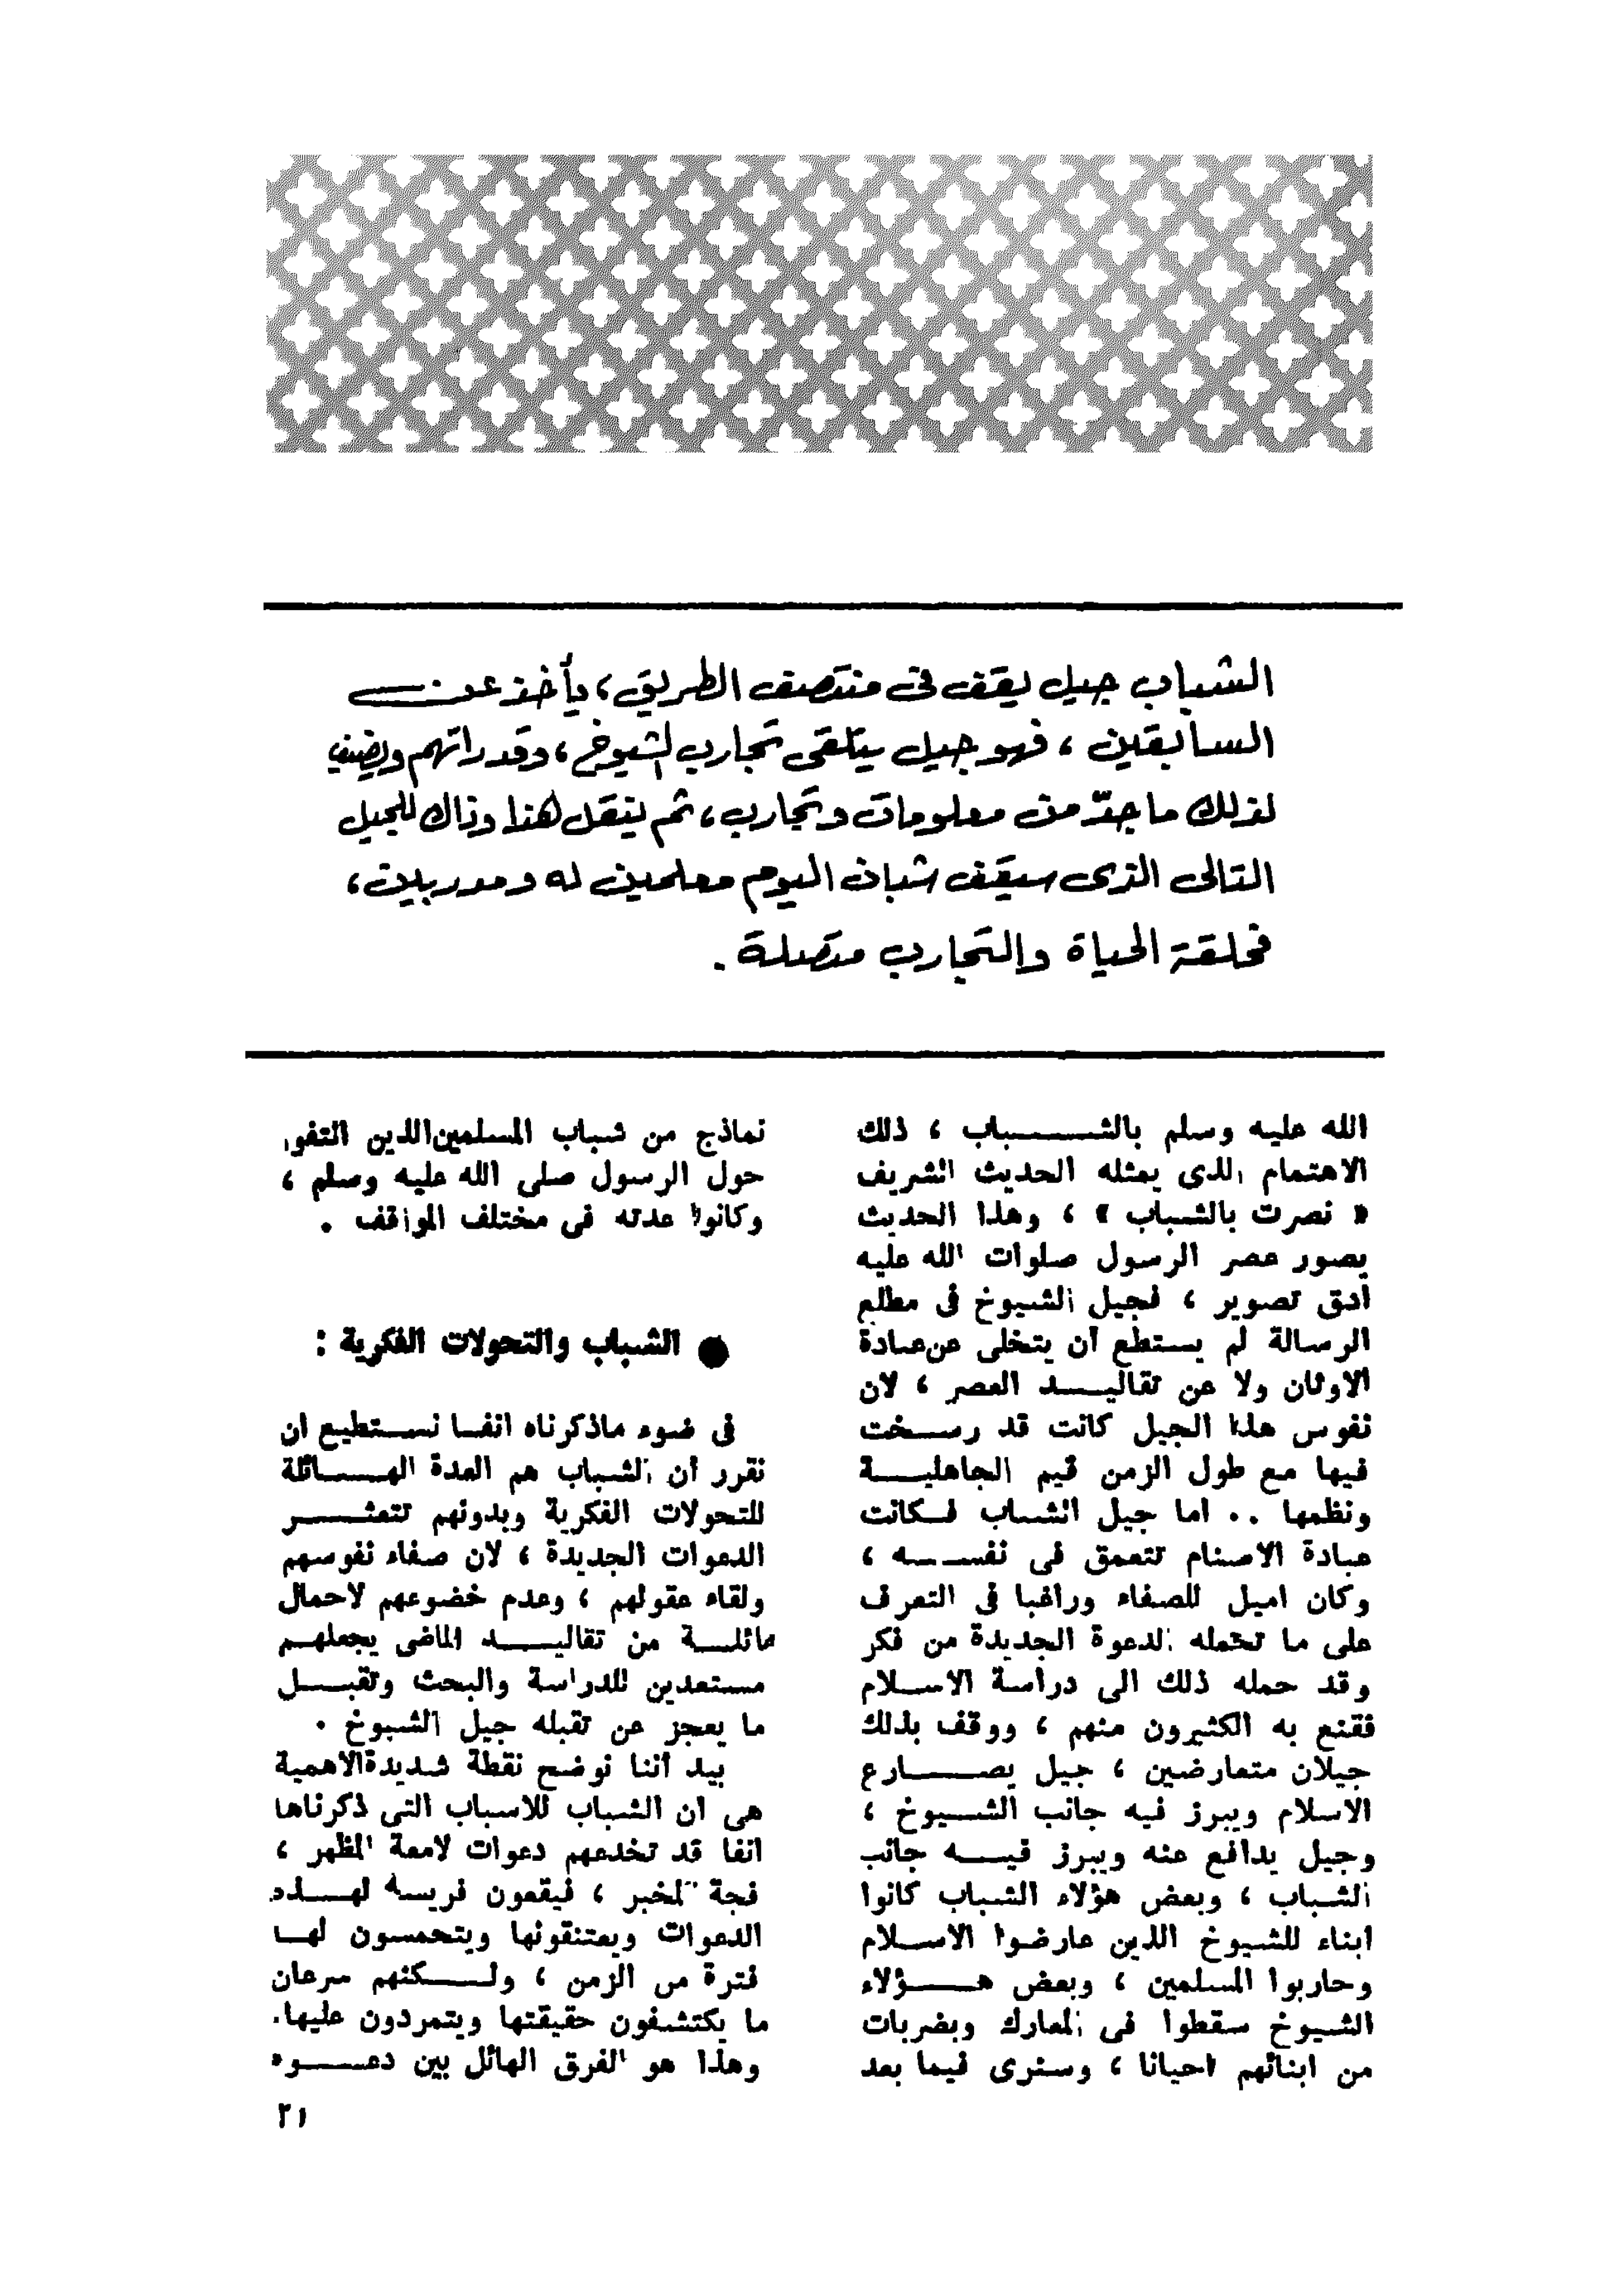 الشباب جيل يقف فى منتصف الطريق ، يأخذ عن
السابقين ، فهو جيل يتلقى تجارب الشيوخ ، وقدراتهم ويضيف
لذلك ما جدّ من معلومات وتجارب ، ثم ينقل هذا وذاك للجيل
التالى الذى سيقف شبان اليوم معلمين له ومدربين ،
فحلقة الحياة والتجارب متصلة .
الله عليه وسلم بالشباب ، ذلك
الاهتمام الذى يمثله الحديث الشريف
« نصرت بالشباب » ، وهذا الحديث
يصور عصر الرسول صلوات الله عليه
أدق تصوير ، فجيل الشيوخ فى مطلع
الرسالة لم يستطع أن يتخلى عن عبادة
الاوثان ولا عن تقاليد العصر ، لان
نفوس هذا الجيل كانت قد رسخت
فيها مع طول الزمن قيم الجاهلية
ونظمها .. اما جيل الشباب فكانت
عبادة الاصنام تتعمق فى نفسه ،
وكان اميل للصفاء وراغبا فى التعرف
على ما تحمله الدعوة الجديدة من فكر
وقد حمله ذلك الى دراسة الاسلام
فقنع به الكثيرون منهم ، ووقف بذلك
جيلان متعارضين ، جيل يصارع
الاسلام ويبرز فيه جانب الشيوخ ،
وجيل يدافع عنه ويبرز فيه جانب
الشباب ، وبعض هؤلاء الشباب كانوا
ابناء للشيوخ الذين عارضوا الاسلام
وحاربوا المسلمين ، وبعض هؤلاء
الشيوخ سقطوا فى المعارك وبضربات
من ابنائهم احيانا ، وسنرى فيما بعد
نماذج من شباب المسلمين الذين التفوا
حول الرسول صلى الله عليه وسلم ،
وكانوا عدته فى مختلف المواقف .
● الشباب والتحولات الفكرية :
فى ضوء ماذكرناه انفا نستطيع ان
نقرر أن الشباب هم العدة الهائلة
للتحولات الفكرية وبدونهم تتعثر
الدعوات الجديدة ، لان صفاء نفوسهم
ولقاء عقولهم ، وعدم خضوعهم لاحمال
مائلة من تقاليد الماضى يجعلهم
مستعدين للدراسة والبحث وتقبل
ما يعجز عن تقبله جيل الشيوخ .
بيد أننا نوضح نقطة شديدة الاهمية
هى ان الشباب للاسباب التى ذكرناها
انفا قد تخدعهم دعوات لامعة المظهر ،
فجة المخبر ، فيقعون فريسة لهذه
الدعوات ويعتنقونها ويتحمسون لها
فترة من الزمن ، ولكنهم سرعان
ما يكتشفون حقيقتها ويتمردون عليها.
وهذا هو الفرق الهائل بين دعوة
٢١